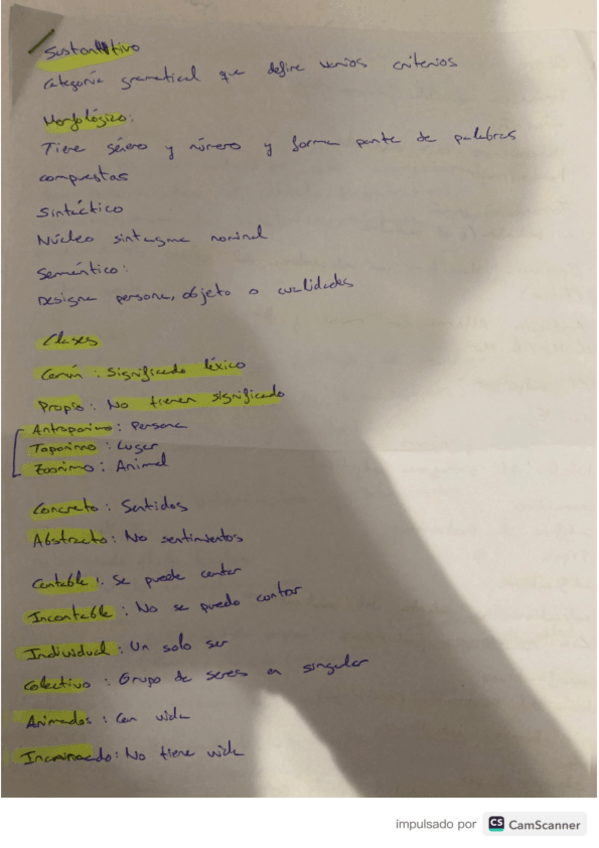 Sustantivo
Categoría gramatical que define varios criterios
Morfológico:
Tiene género y número y forma parte de palabras
compuestas
Sintáctico
Núcleo sintagma nominal
Semántico:
Designa persona, objeto o cualidades
Clases
Común : Significado léxico
Propio : No tienen significado
Antroponimo : Persona
Toponimo : Lugar
Zoonimo : Animal
Concreto : Sentidos
Abstracto : No sentimientos
Contable : Se puede contar
Incontable : No se puede contar
Individual : Un solo ser
Colectivo : Grupo de seres en singular
Animados : Con vida
Inanimado : No tiene vida
impulsado por CS CamScanner